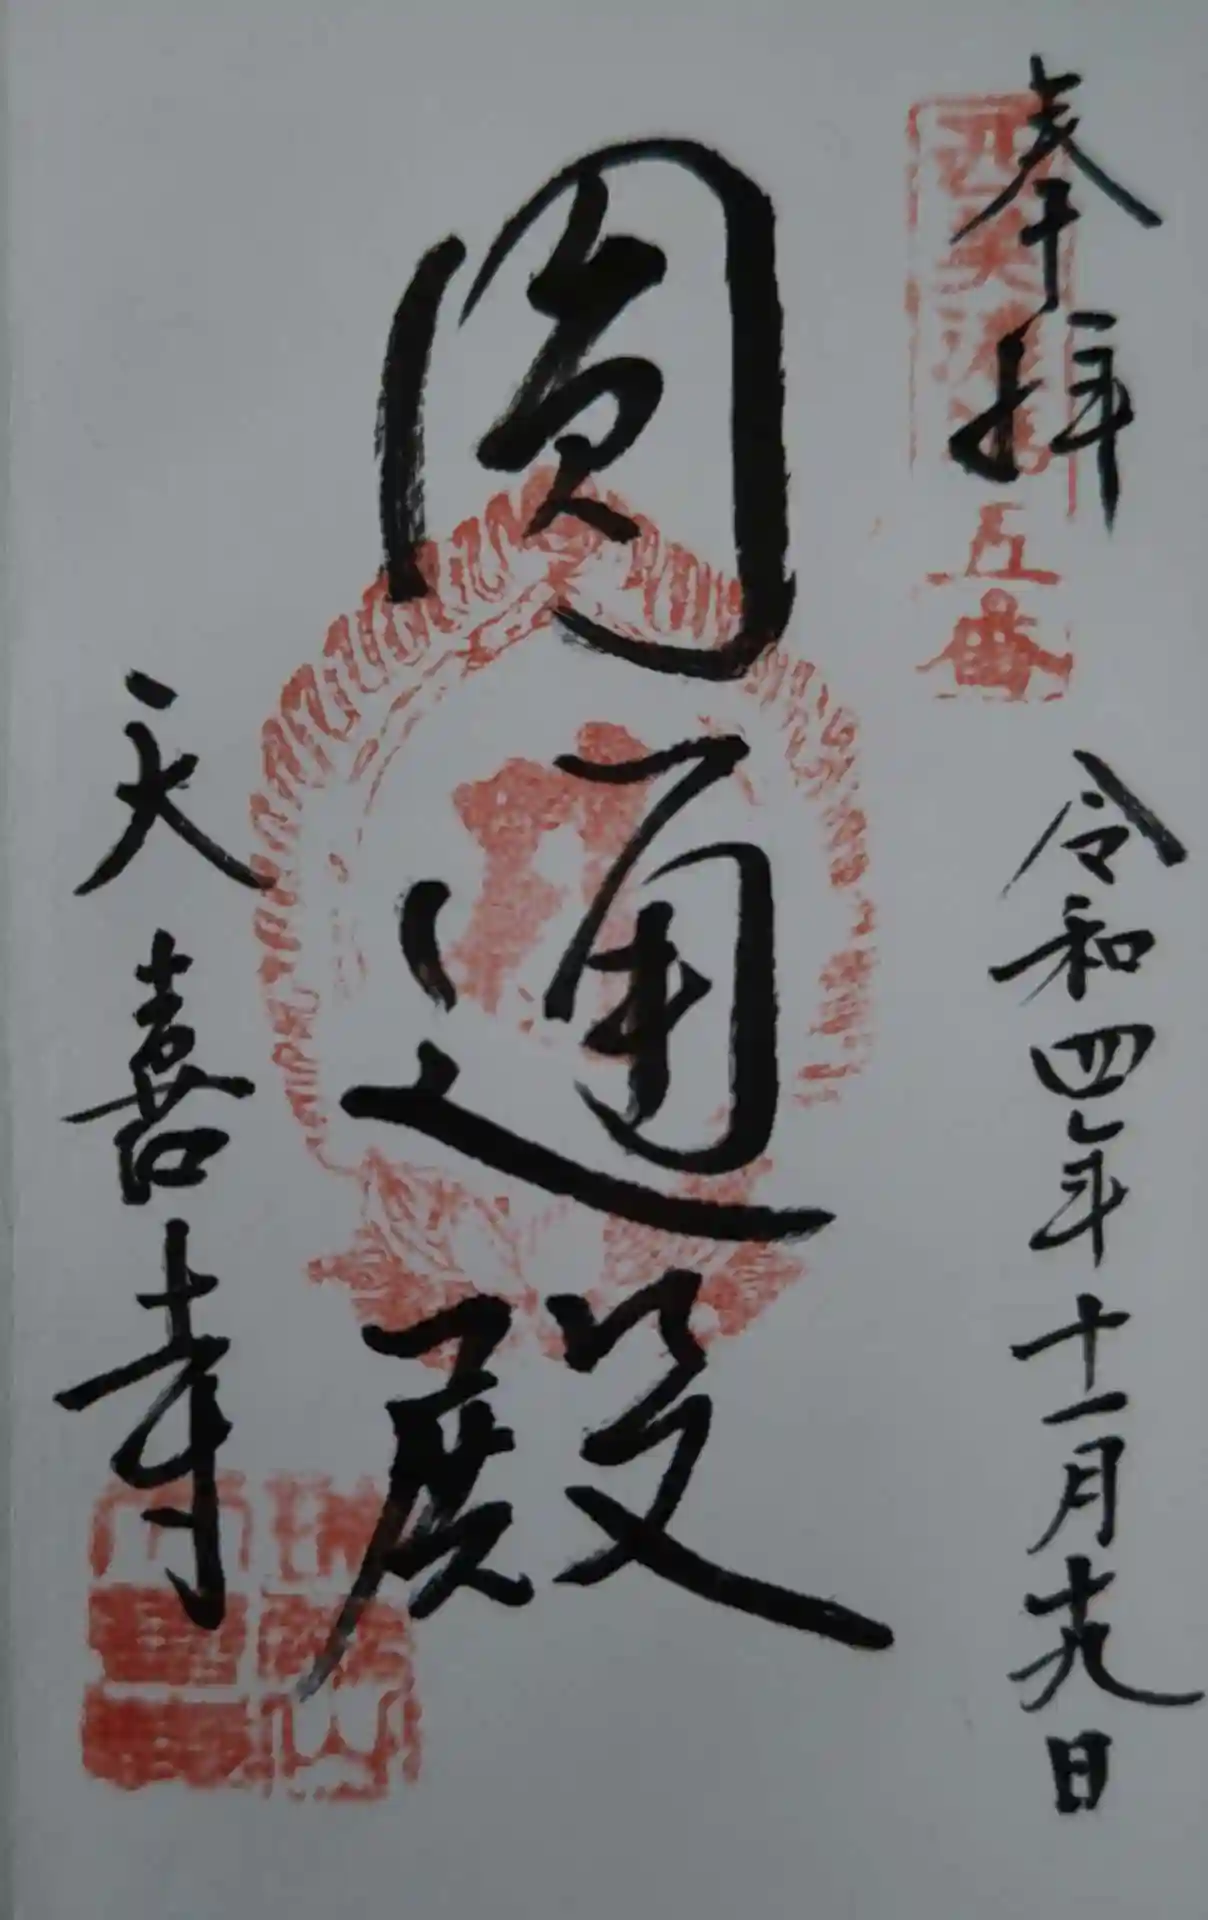 奉拝
令和四年十一月十九日
圓通殿
天喜寺